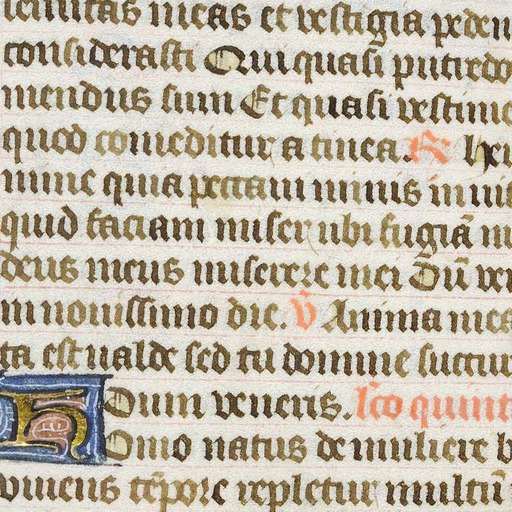 semitas meas et vestigia pedu
considerasti Qui quasi putredo
mendus sum Et quasi vestime
quod comeditur a tinea. R heu
mine quia peccavi nimis in vit
quid faciam miser ubi fugiā ni
deus meus miserere mei Dū ve
in novissimo die. V Anima mea
ta est valde sed tu domine succur
Dum veneris. lc̄o quint
Homo natus de muliere b
vivens tēpore repletur multū